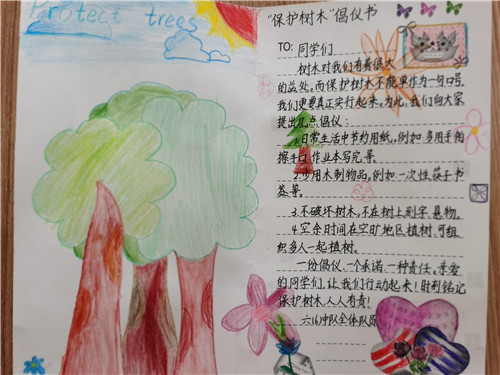 Protect trees
“保护树木”倡议书
TO:同学们
树木对我们有着很大
的益处。而保护树木不能单作为一句口号,
我们更要真正实行起来。为此,我们向大家
提出几点倡议:
1.日常生活中节约用纸,例如:多用手帕
擦手口,作业本写完等。
2.少用木制物品,例如:一次性筷子书
签等。
3.不破坏树木,不在树上刻字、悬物。
4.空余时间在空旷地区植树,可组
织多人一起植树。
一份倡议,一个承诺,一种责任,亲爱
的同学们,让我们行动起来!时刻铭记
保护树木,人人有责!
六(6)中队全体队员